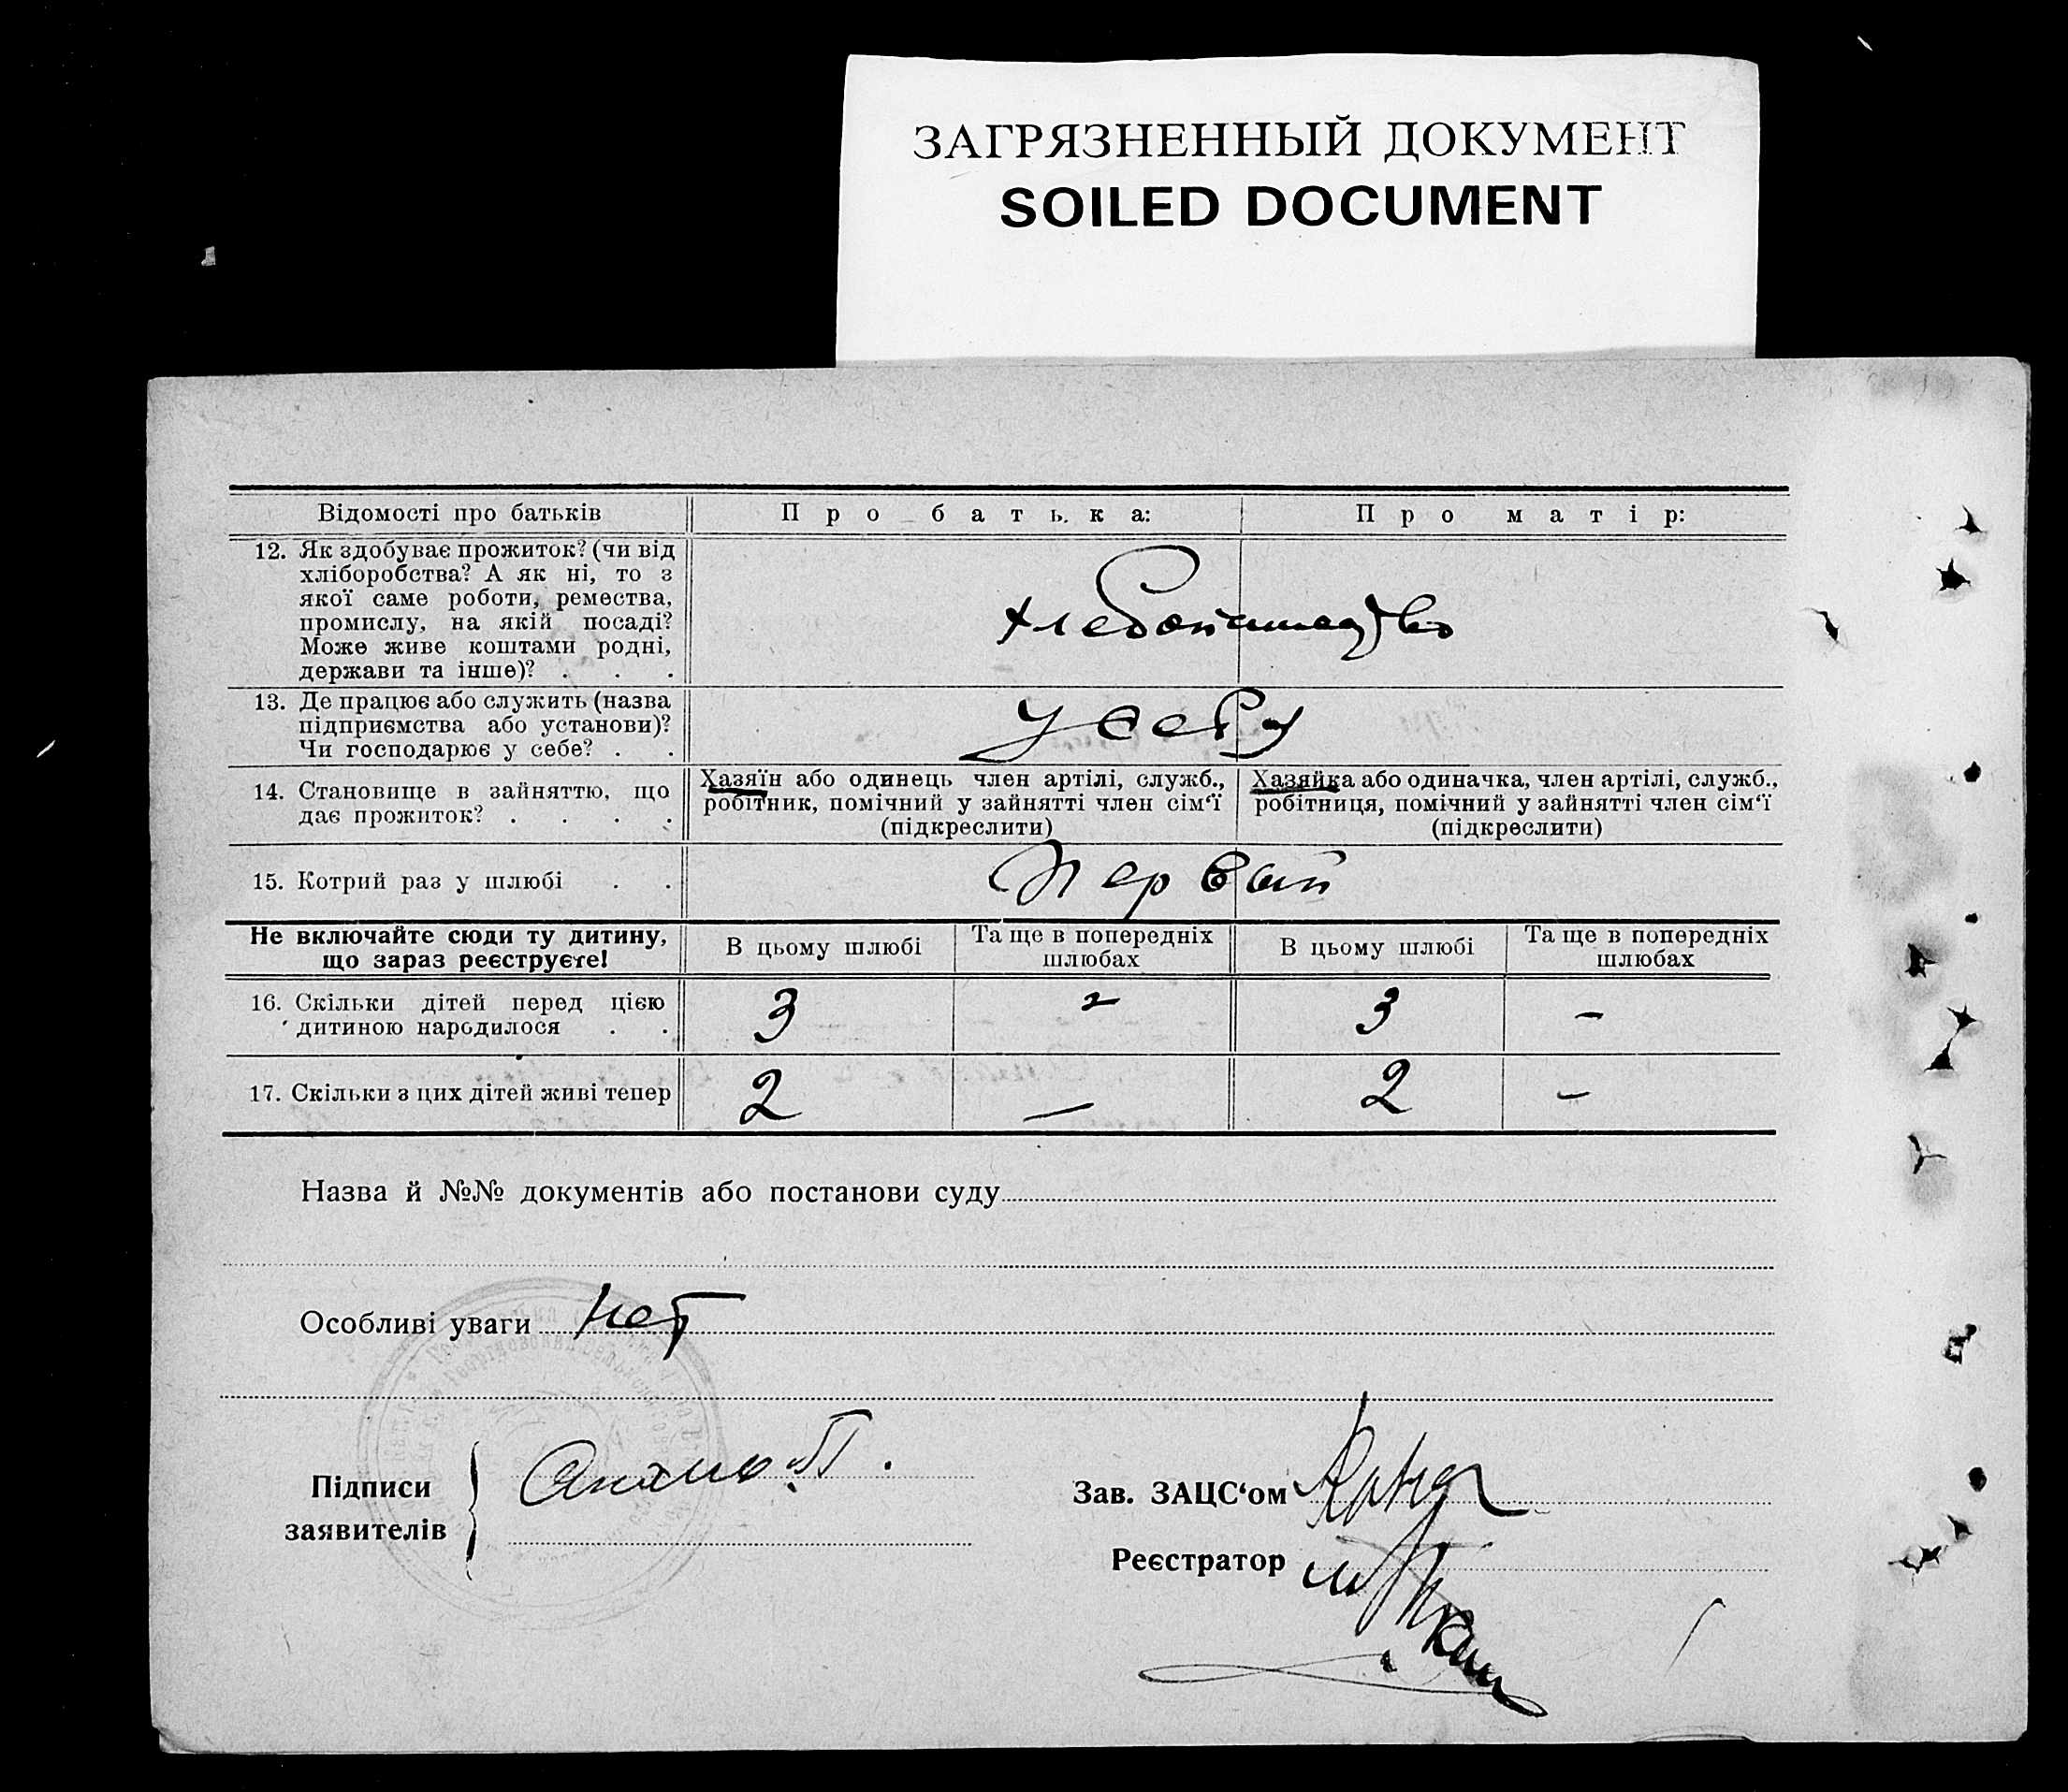 ЗАГРЯЗНЕННЫЙ ДОКУМЕНТ
SOILED DOCUMENT
Відомості про батьків
Про батька:
Про матір:
12. Як здобуває прожиток? (чи від
хліборобства? А як ні, то з
якої саме роботи, ремества,
промислу, на якій посаді?
Може живе коштами родні,
держави та інше)? . . .
хлебопашество
13. Де працює або служить (назва
підприємства або установи)?
Чи господарює у себе? . .
у себя
14. Становище в зайняттю, що
дає прожиток? . . . .
Хазяїн або одинець член артілі, служб.,
робітник, помічний у зайнятті член сім‘ї
(підкреслити)
Хазяйка або одиначка, член артілі, служб.,
робітниця, помічний у зайнятті член сім‘ї
(підкреслити)
15. Котрий раз у шлюбі . .
Первый
Не включайте сюди ту дитину,
що зараз реєструєте!
В цьому шлюбі
Та ще в попередніх
шлюбах
В цьому шлюбі
Та ще в попередніх
шлюбах
16. Скільки дітей перед цією
дитиною народилося . .
3 - 3 -
17. Скільки з цих дітей живі тепер
2 - 2 -
Назва й №№ документів або постанови суду
Особливі уваги нет
Підписи
заявителів
Зав. ЗАЦС‘ом
Реєстратор